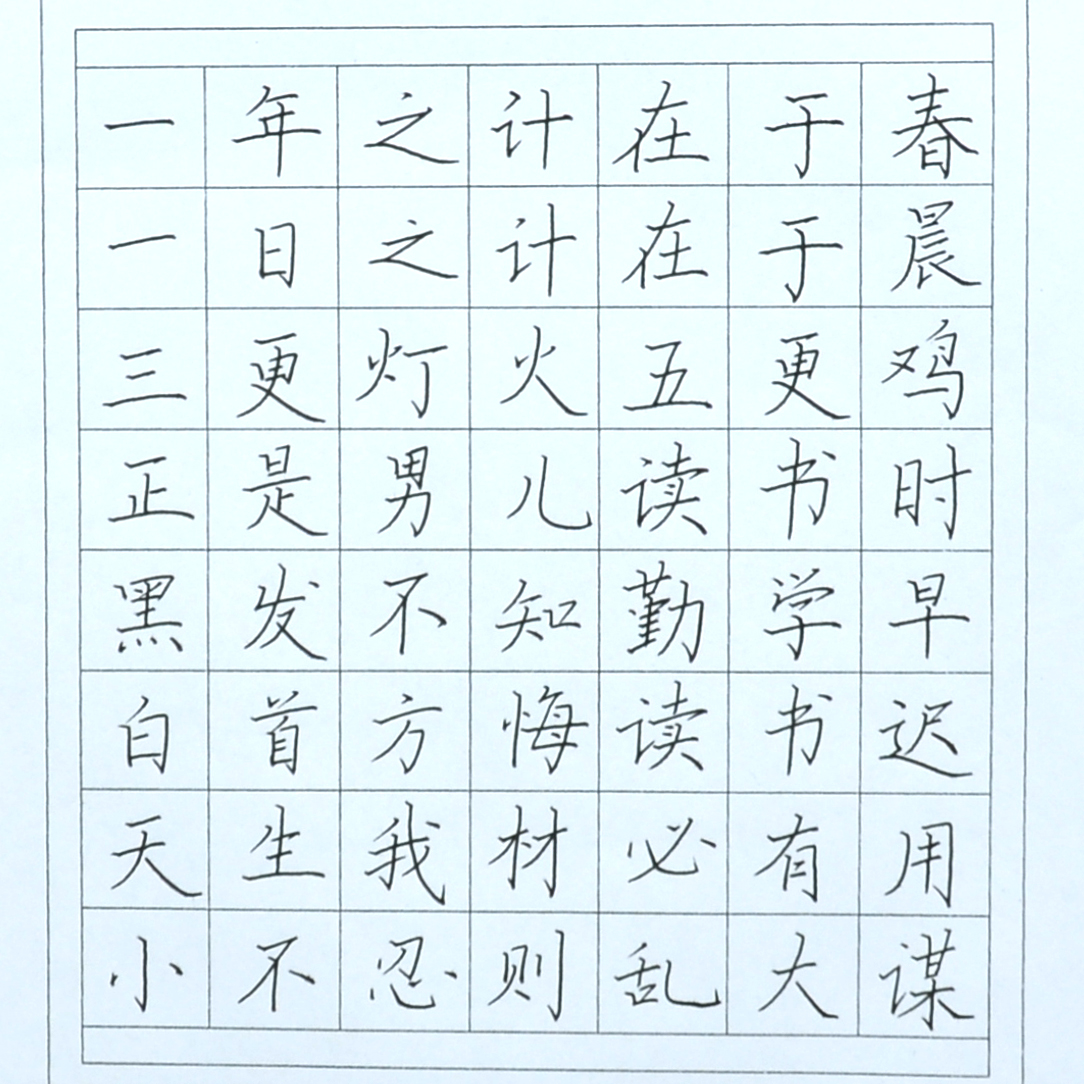 一年之计在于春
一日之计在于晨
三更灯火五更鸡
正是男儿读书时
黑发不知勤学早
白首方悔读书迟
天生我材必有用
小不忍则乱大谋